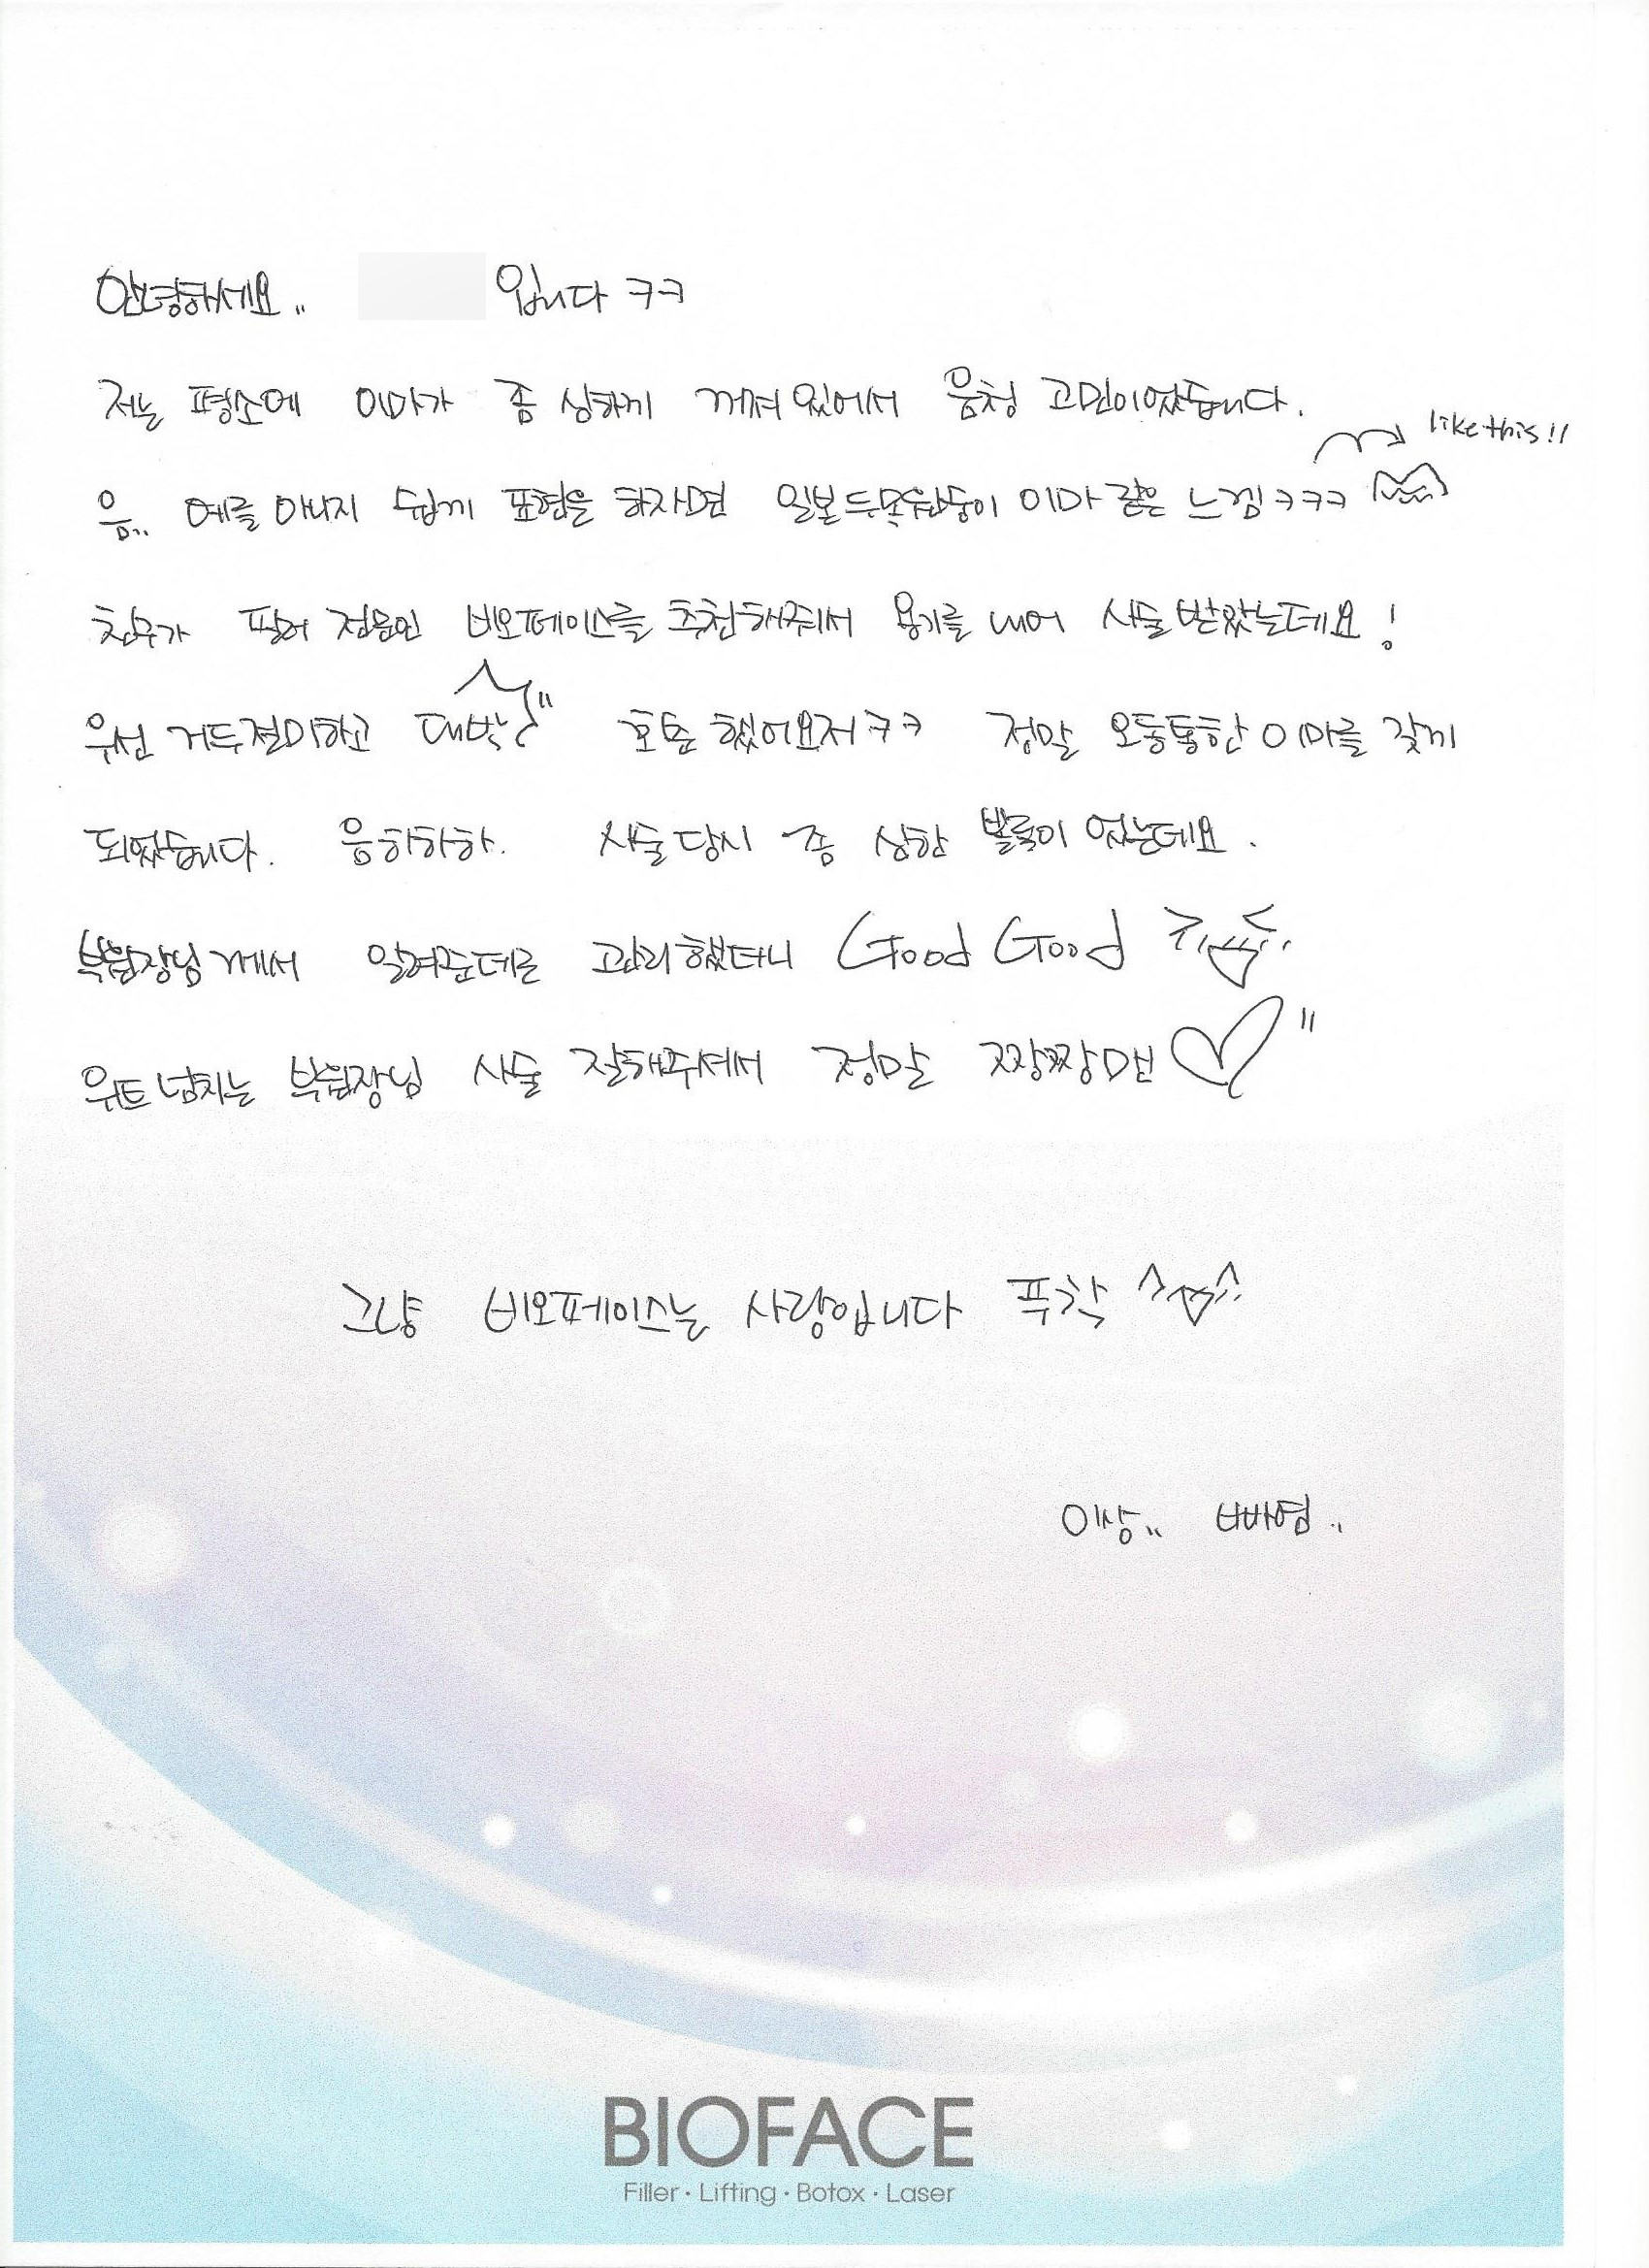 안녕하세요.. 입니다 ㅋㅋ
저는 평소에 이마가 좀 심하게 꺼져있어서 음청 고민이었습니다.
like this!!
음.. 예를 아니지 쉽게 표현을 하자면 일본 원숭이 이마 같은 느낌ㅋㅋㅋ
친구가 필러 전문인 비오페이스를 추천해줘서 용기를 내어 시술받았는데요!
우선 거두절미하고 대박 했어요저ㅋㅋ 정말 오동통한 이마를 갖게
되었습니다. 음하하하. 시술당시 좀 심한 볼록이 었는데요.
박원장님께서 알려준데로 관리했더니 Good Good
위트넘치는 박원장님 시술 잘해주셔서 정말 짱짱맨♡"
그냥 비오페이스는 사랑입니다 푹찍 ^^
이상..
BIOFACE
Filler · Lifting · Botox · Laser